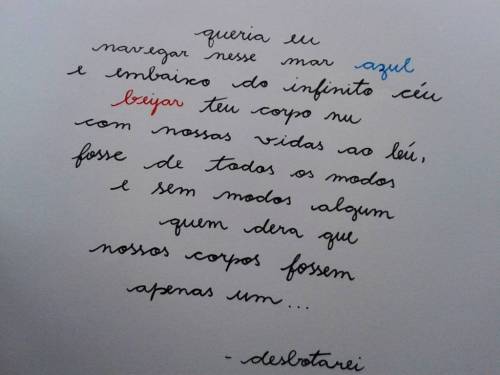 queria eu
navegar nesse mar azul
e embaixo do infinito céu
beijar teu corpo nu
com nossas vidas ao léu,
fosse de todos os modos
e sem modos algum
quem dera que
nossos corpos fossem
apenas um...
- desbotarei